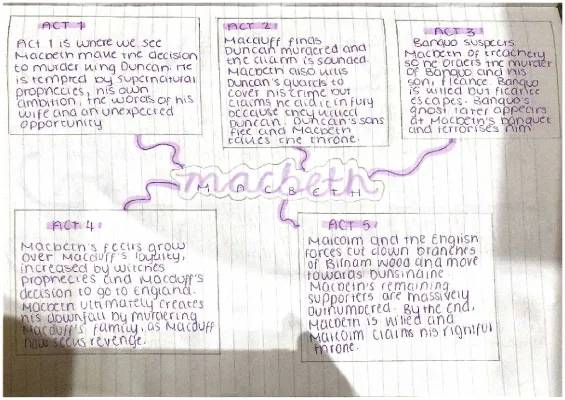 ACT 1
Act 1 is where we see
Macbeth make the decision
to murder King Duncan. He
is tempted by supernatural
prophecies, his own
ambition, the words of his
wife and an unexpected
opportunity
ACT 2
Macduff finds
Duncan murdered and
the alarm is sounded.
Macbeth also kills
Duncan's guards to
cover his crime but
claims he did it in fury
because they killed
Duncan. Duncan's sons
flee and Macbeth
takes the throne.
ACT 3
Banquo suspects
Macbeth of treachery
so he orders the murder
of Banquo and his
son, Fleance. Banquo
is killed but Fleance
escapes. Banquo's
ghost later appears
at Macbeth's banquet
and terrorises him
macbeth
MACBETH
ACT 4
Macbeth's fears grow
over Macduff's loyalty,
increased by witches
prophecies and Macduff's
decision to go to England.
Macbeth ultimately creates
his downfall by murdering
Macduff's family, as Macduff
now seeks revenge.
ACT 5
Malcolm and the English
forces cut down branches
of Birnam wood and move
towards Dunsinaine.
Macbeth's remaining
supporters are massively
outnumbered. By the end,
Macbeth is killed and
Malcolm claims his rightful
throne.